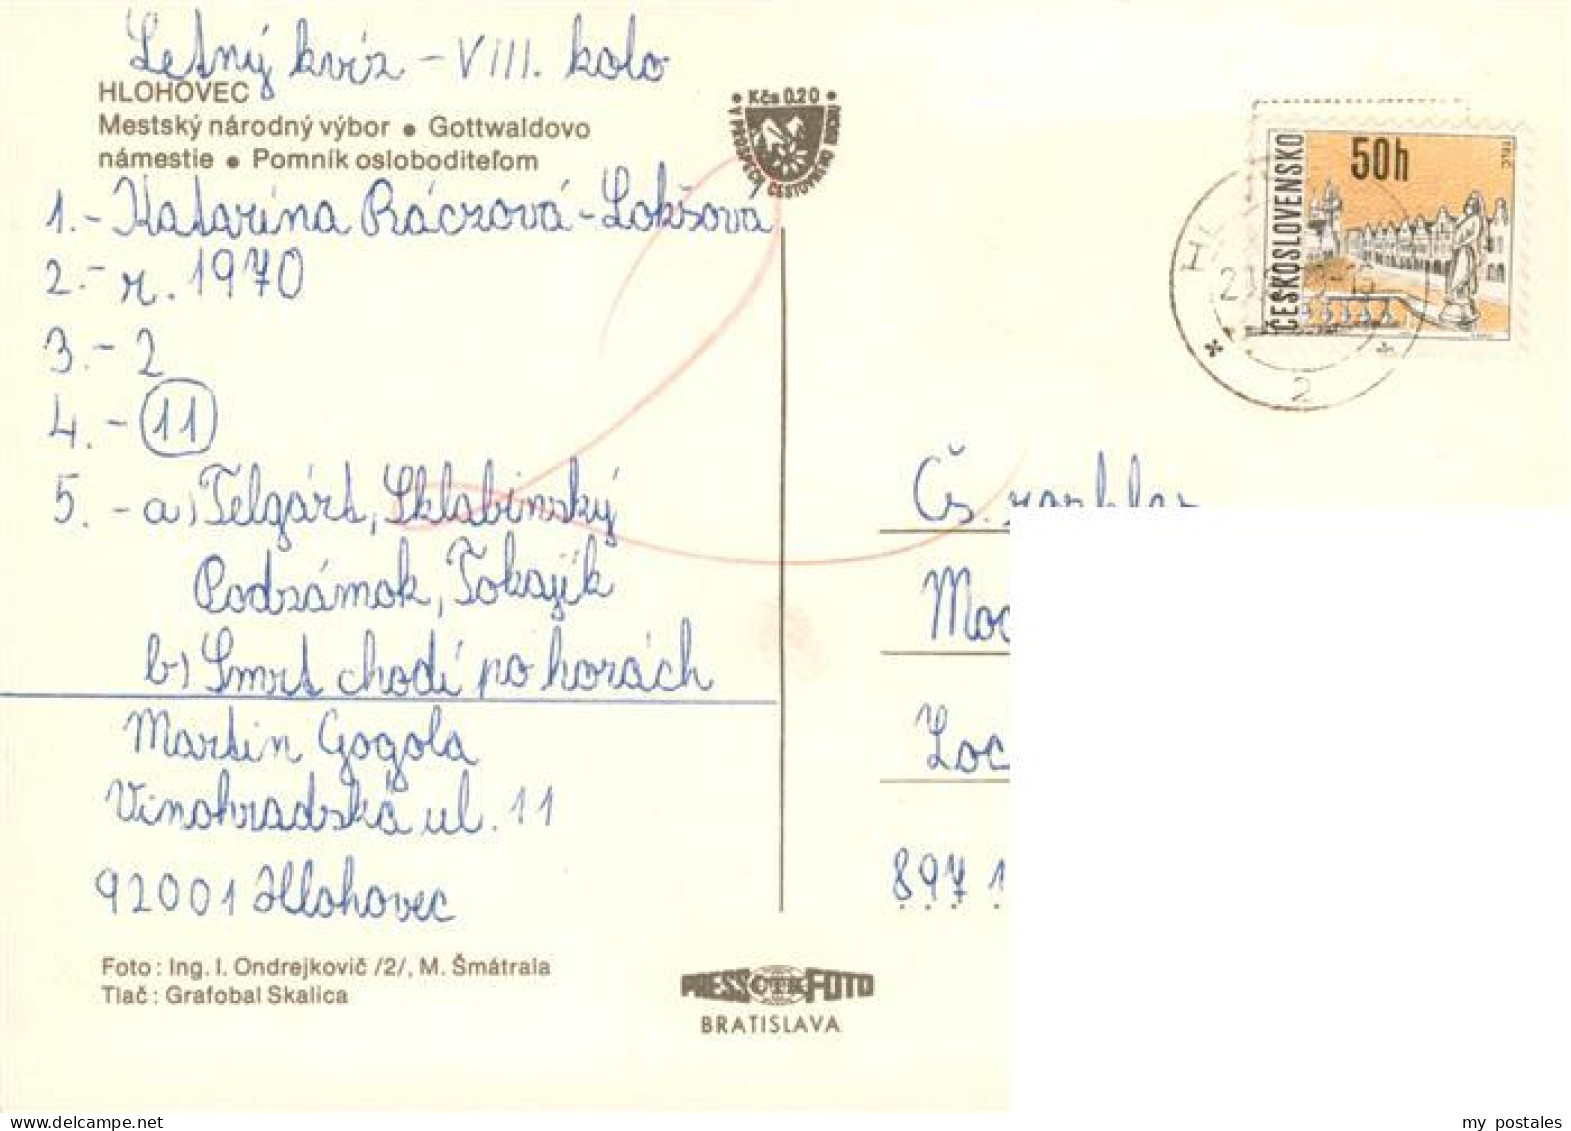 Letný kvíz - VIII. kolo
HLOHOVEC
Mestský národný výbor ● Gottwaldovo
námestie ● Pomník osloboditeľom
1.- Katarína Ráczová-Lokšová
2.- r. 1970
3.- 2
4.- 11
5.- a) Telgárt, Sklabinský
Podzámok, Tokajík
b) Smrt chodí po horách
Martin Gogola
Vinohradská ul. 11
92001 Hlohovec
Foto: Ing. I. Ondrejkovič /2/, M. Šmátrala
Tlač: Grafobal Skalica
• Kčs 0,20 •
V PROSPECH CESTOVNÉHO RUCHU
PRESSFOTO
ČTK
BRATISLAVA
ČESKOSLOVENSKO
50h
TELČ
2
Čs.
897 1
my postales